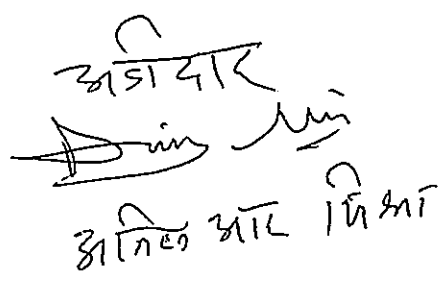 अर्जदार
अनिल आर मिश्रा